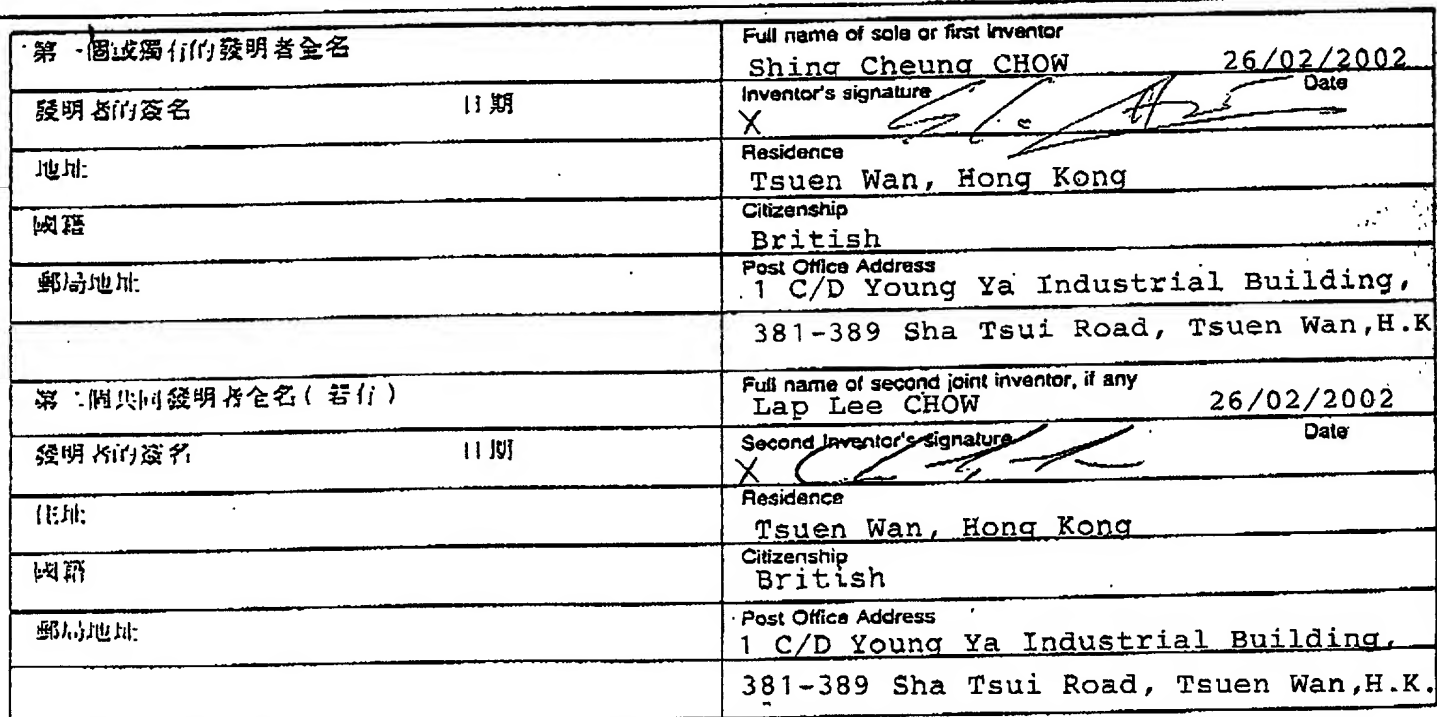 第一個或獨有的發明者全名
Full name of sole or first inventor
Shing Cheung CHOW 26/02/2002
發明者的簽名 日期
Inventor's signature Date
X
地址
Residence
Tsuen Wan, Hong Kong
國籍
Citizenship
British
郵局地址
Post Office Address
1 C/D Young Ya Industrial Building,
381-389 Sha Tsui Road, Tsuen Wan,H.K
第二個共同發明者全名(若有)
Full name of second joint inventor, if any
Lap Lee CHOW 26/02/2002
發明者的簽名 日期
Second Inventor's signature Date
X
住址
Residence
Tsuen Wan, Hong Kong
國籍
Citizenship
British
郵局地址
Post Office Address
1 C/D Young Ya Industrial Building,
381-389 Sha Tsui Road, Tsuen Wan,H.K.